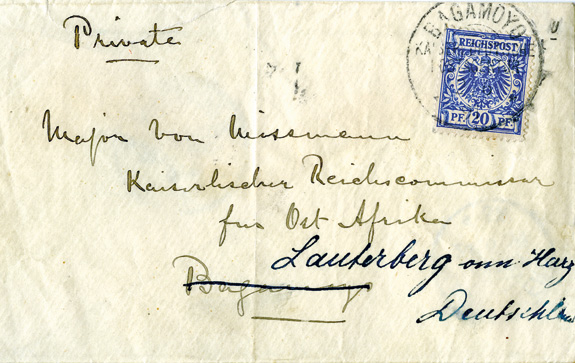 Private
BAGAMOYO
REICHSPOST
PF 20 PF
Major von Wissmann
Kaiserlischer Reichscommissar
fur Ost Afrika
Lauterberg am Harz
Bagamoyo
Deutschla